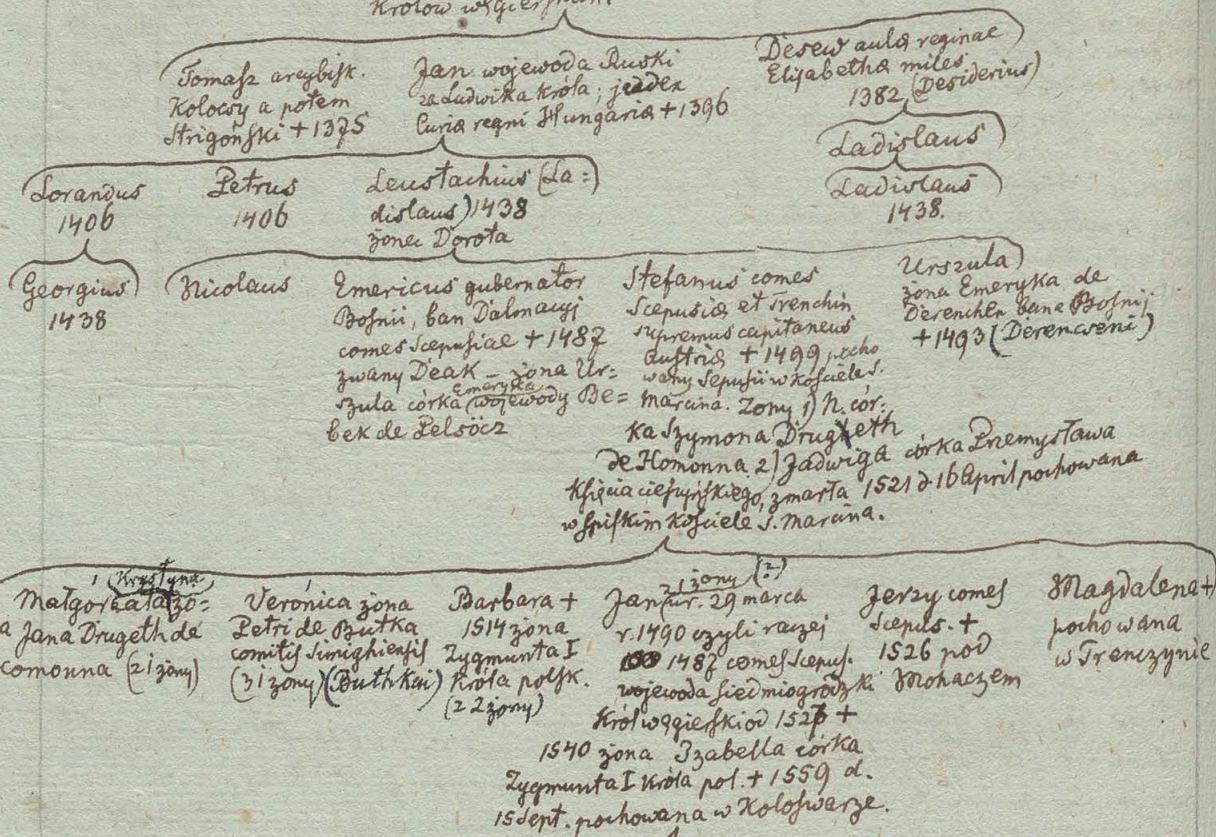 Królow węgierskich
Tomasz arcybisk.
Kolocsy a potem
Strigoński + 1375
Jan wojewoda Ruski
za Ludwika króla; judex
Curiæ regni Hungariæ + 1396
Desew aulæ reginae
Elisabethæ miles
1382 (Desiderius)
Ladislaus
Ladislaus
1438.
Lorandus
1406
Petrus
1406
Leustachius (La=
dislaus) 1438
żona Dorota
Georgius
1438
Nicolaus
Emericus gubernator
Bośnii, ban Dalmacyj
comes Scepusiae + 1487
zwany Deak – żona Ur=
szula córka Emeryka wojewody Be=
bek de Pelsöcz
Stefanus comes
Scepusiæ et Trenchin
supremus capitaneus
Austriæ + 1499, pocho
wany Sepusii w kościele S.
Marcina. Żony 1) N. cór:
ka Szymona Drugeth
de Homonna 2) Jadwiga córka Przemysława
Księcia cieszyńskiego, zmarła 1521 d 16 April pochowana
w Spiskim kościele S. Marcina.
Urszula
żona Emeryka de
Derenchen bana Bośnij
+ 1493 (Derencseni)
1 (Krystyna)
Małgorzata żo=
a Jana Drugeth de
omonna (z 1 żony)
Veronica żona
Petri de Butka
comitis Simighiensis
(3 1 żony) (Buthkay)
Barbara +
1514 żona
Zygmunta I
Króla polsk.
(z 2 żony)
z 1 żony (?)
Jan ur. 29 marca
r. 1490 czyli raczej
1487 comes Scepus.
wojewoda Siedmiogrodzki
Król węgierski od 1526 +
1540 żona Izabella córka
Zygmunta I Króla pol. + 1559 d.
15 Sept. pochowana w Koloswarze.
Jerzy comes
Scepus. +
1526 pod
Mohaczem
Magdalena +
pochowana
w Trenczynie